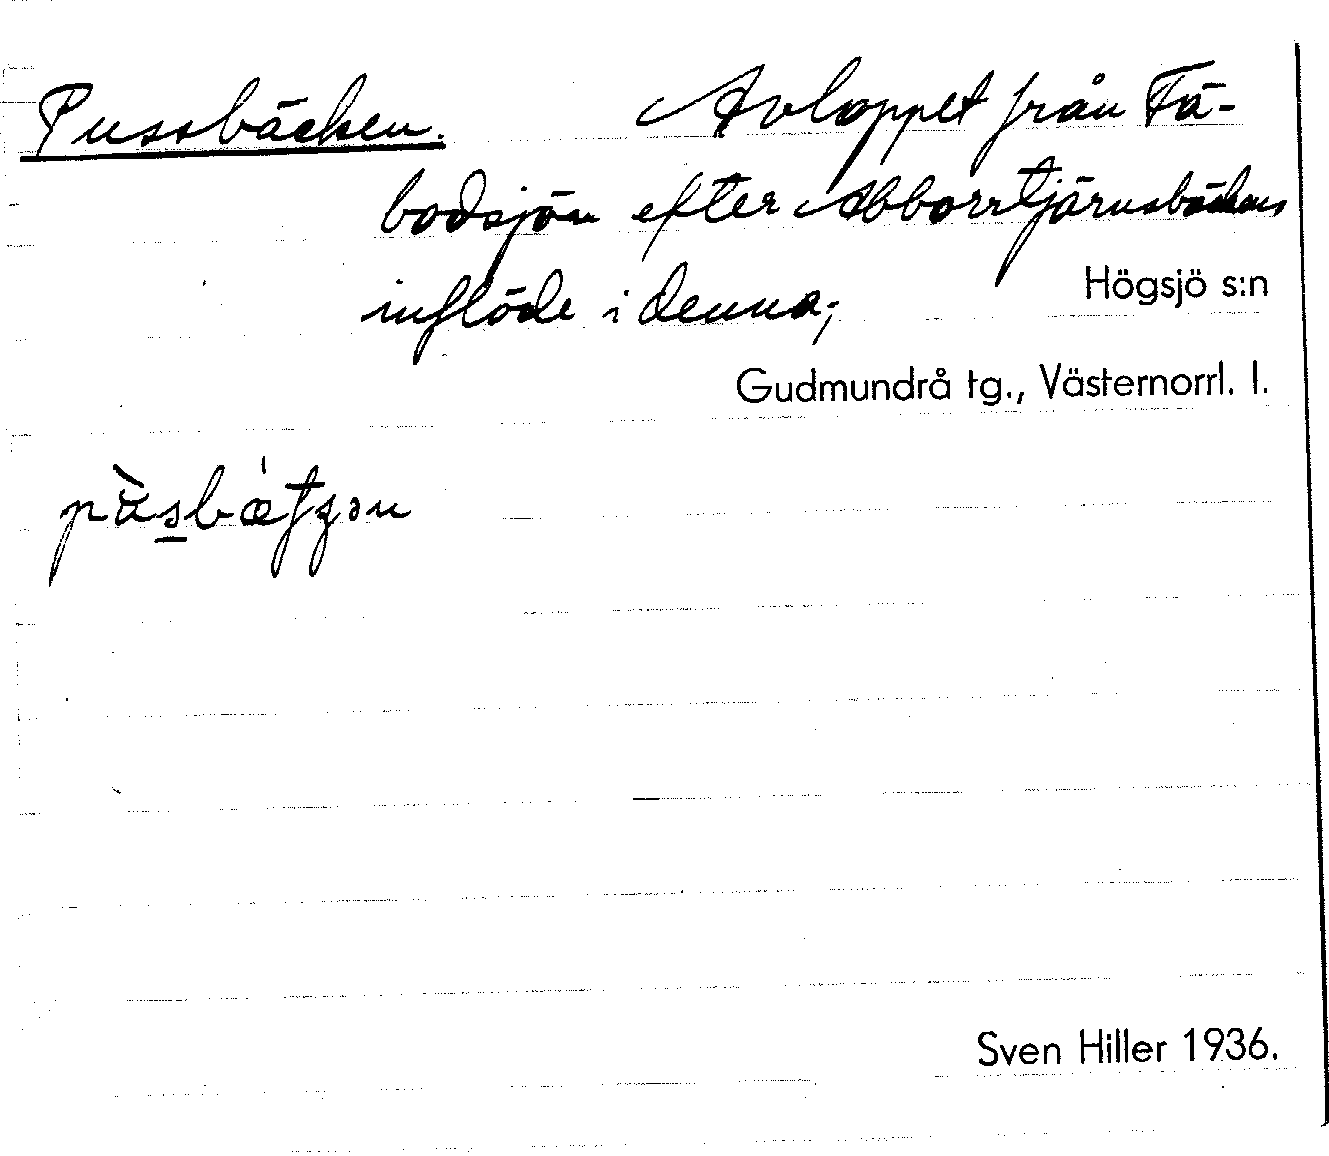 Pussbäcken. Avloppet från Fä-
bodsjön efter Abborrtjärnsbäckens
inflöde i denna;
Högsjö s:n
Gudmundrå tg., Västernorrl. l.
Sven Hiller 1936.